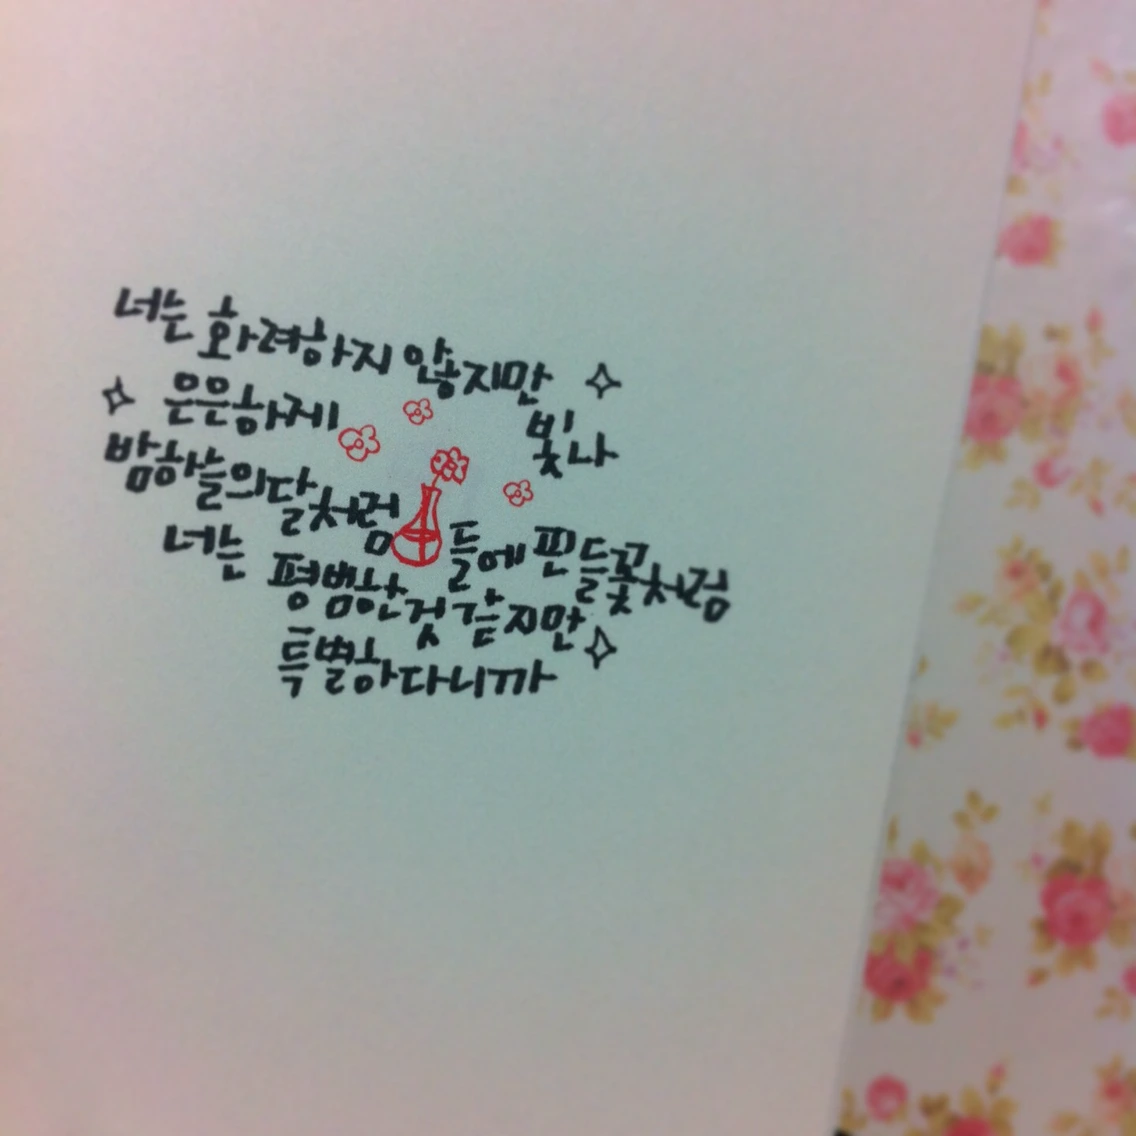 너는 화려하지 않지만
은은하게 빛나
밤하늘의달처럼 들에 핀들꽃처럼
너는 평범한것 같지만
특별하다니까